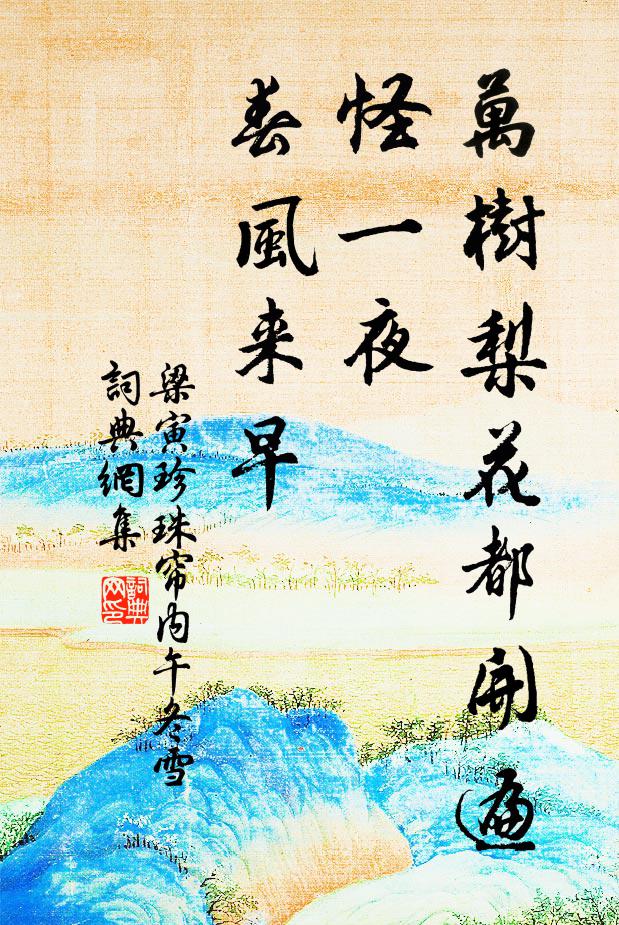 萬樹梨花都開遍
怪一夜
春風来早
梁寅珍珠帘内午冬雪
詞典網集
詞典
网印